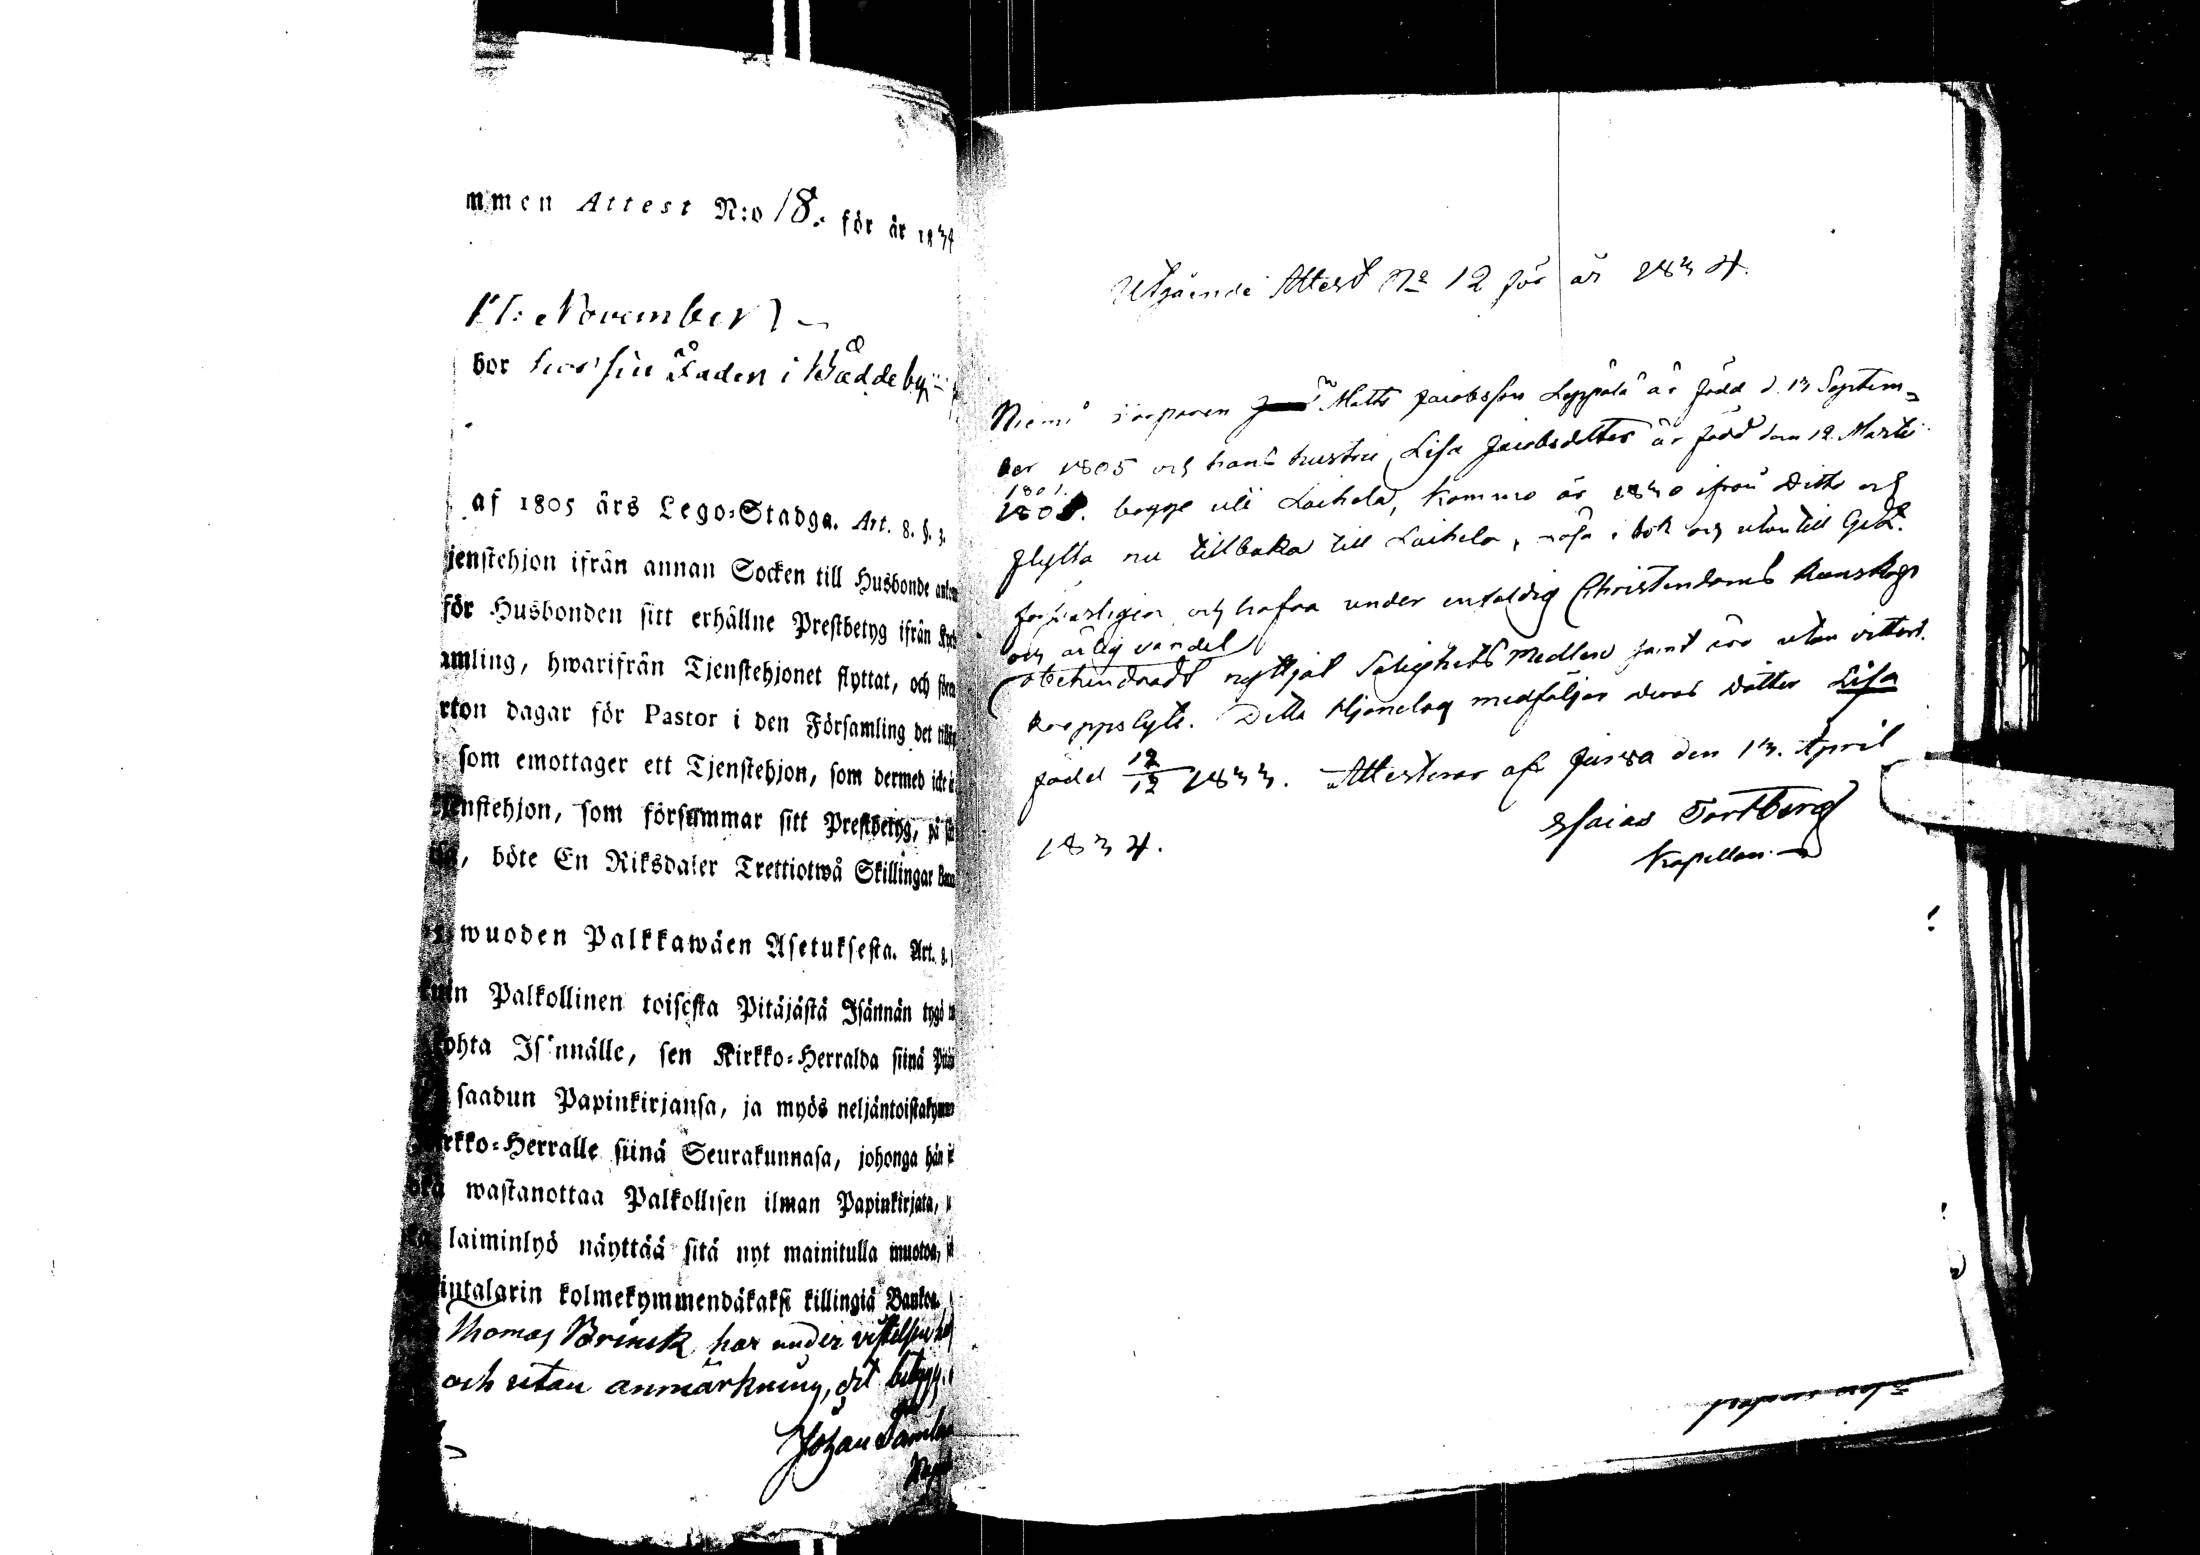 mmen Attest N:o 18. för år 1834
11: November
bor hos sin Fader i Wädde by
af 1805 års Lego-Stadga. Art. 8. §. 3.
jenstehjon ifrån annan Socken till Husbonde
för Husbonden sitt erhållne Prestbetyg ifrån
amling, hwarifrån Tjenstehjonet flyttat, och
rton dagar för Pastor i den Församling det
som emottager ett Tjenstehjon, som dermed icke
enstehjon, som försummar sitt Prestbetyg, på
böte En Riksdaler Trettiotwå Skillingar
wuoden Palkkawäen Asetuksesta. Art. 8.
kuin Palkollinen toisesta Pitäjästä Isännän tygö
ohta Is nnälle, sen Kirkko-Herralda siinä
saadun Papinkirjansa, ja myös neljäntoistakymm
rkko-Herralle siinä Seurakunnasa, johonga hän
wastanottaa Palkollisen ilman Papinkirjata,
laiminlyö näyttää sitä nyt mainitulla muotoa,
intalarin kolmekymmendäkaksi killingiä Bankoa.
Thomas Brinck har under vistelsen
och utan anmärkning, det betygg.
Johan
Utgående Attest No 12 för år 1834.
Niemi Matts Jacobsson Leppälä är född d. 13 Septem-
ber 1805 och hans hustru Lisa Jacobsdotter är född den 12. Martii
1801.
begge uti Laihela, kommo år 1830 ifrån Ditto och
flytta nu tillbaka till Laihela, läsa i bok och utantill
och hafva under enfaldig Christendoms kunskap
och ärlig vandel
obehindradt nyttjat Salighets Medlen samt äro utan vittert.
kroppslyte. Detta Hjonelag medföljer deras dotter Lisa
född 12/12 1833. Attesteras af Jurva den 13. April
1834.
Esaias Fortberg
Kapellan